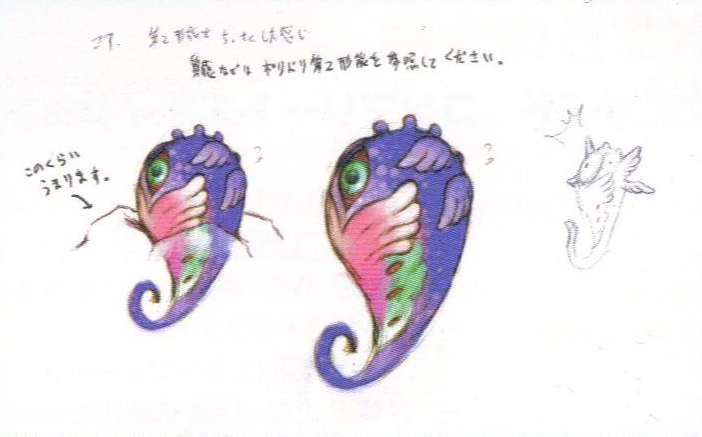 コア. 第2形態を ちっさくした感じ
質感などは ホリドリ第2形態を 参照して ください。
このくらい
うまります。